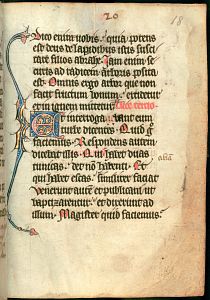 20
18
Dico enim vobis. quia potens
est deus de lapidibus istis susci
tare filios abrahe. Iam enim se
curis ad radicem arboris posita
est. Omnis ergo arbor que non
facit fructum bonum. excidetur
et in ignem mittetur.
Et interrogabant eum
turbe dicentes. Quid ergo
faciemus. Respondens autem
dicebat illis. Qui habet duas
tunicas. det non habenti. Et
qui habet escas. similiter faciat
Venerunt autem et publicani ut
baptizarentur. et dixerunt ad
illum. Magister quid faciemus.